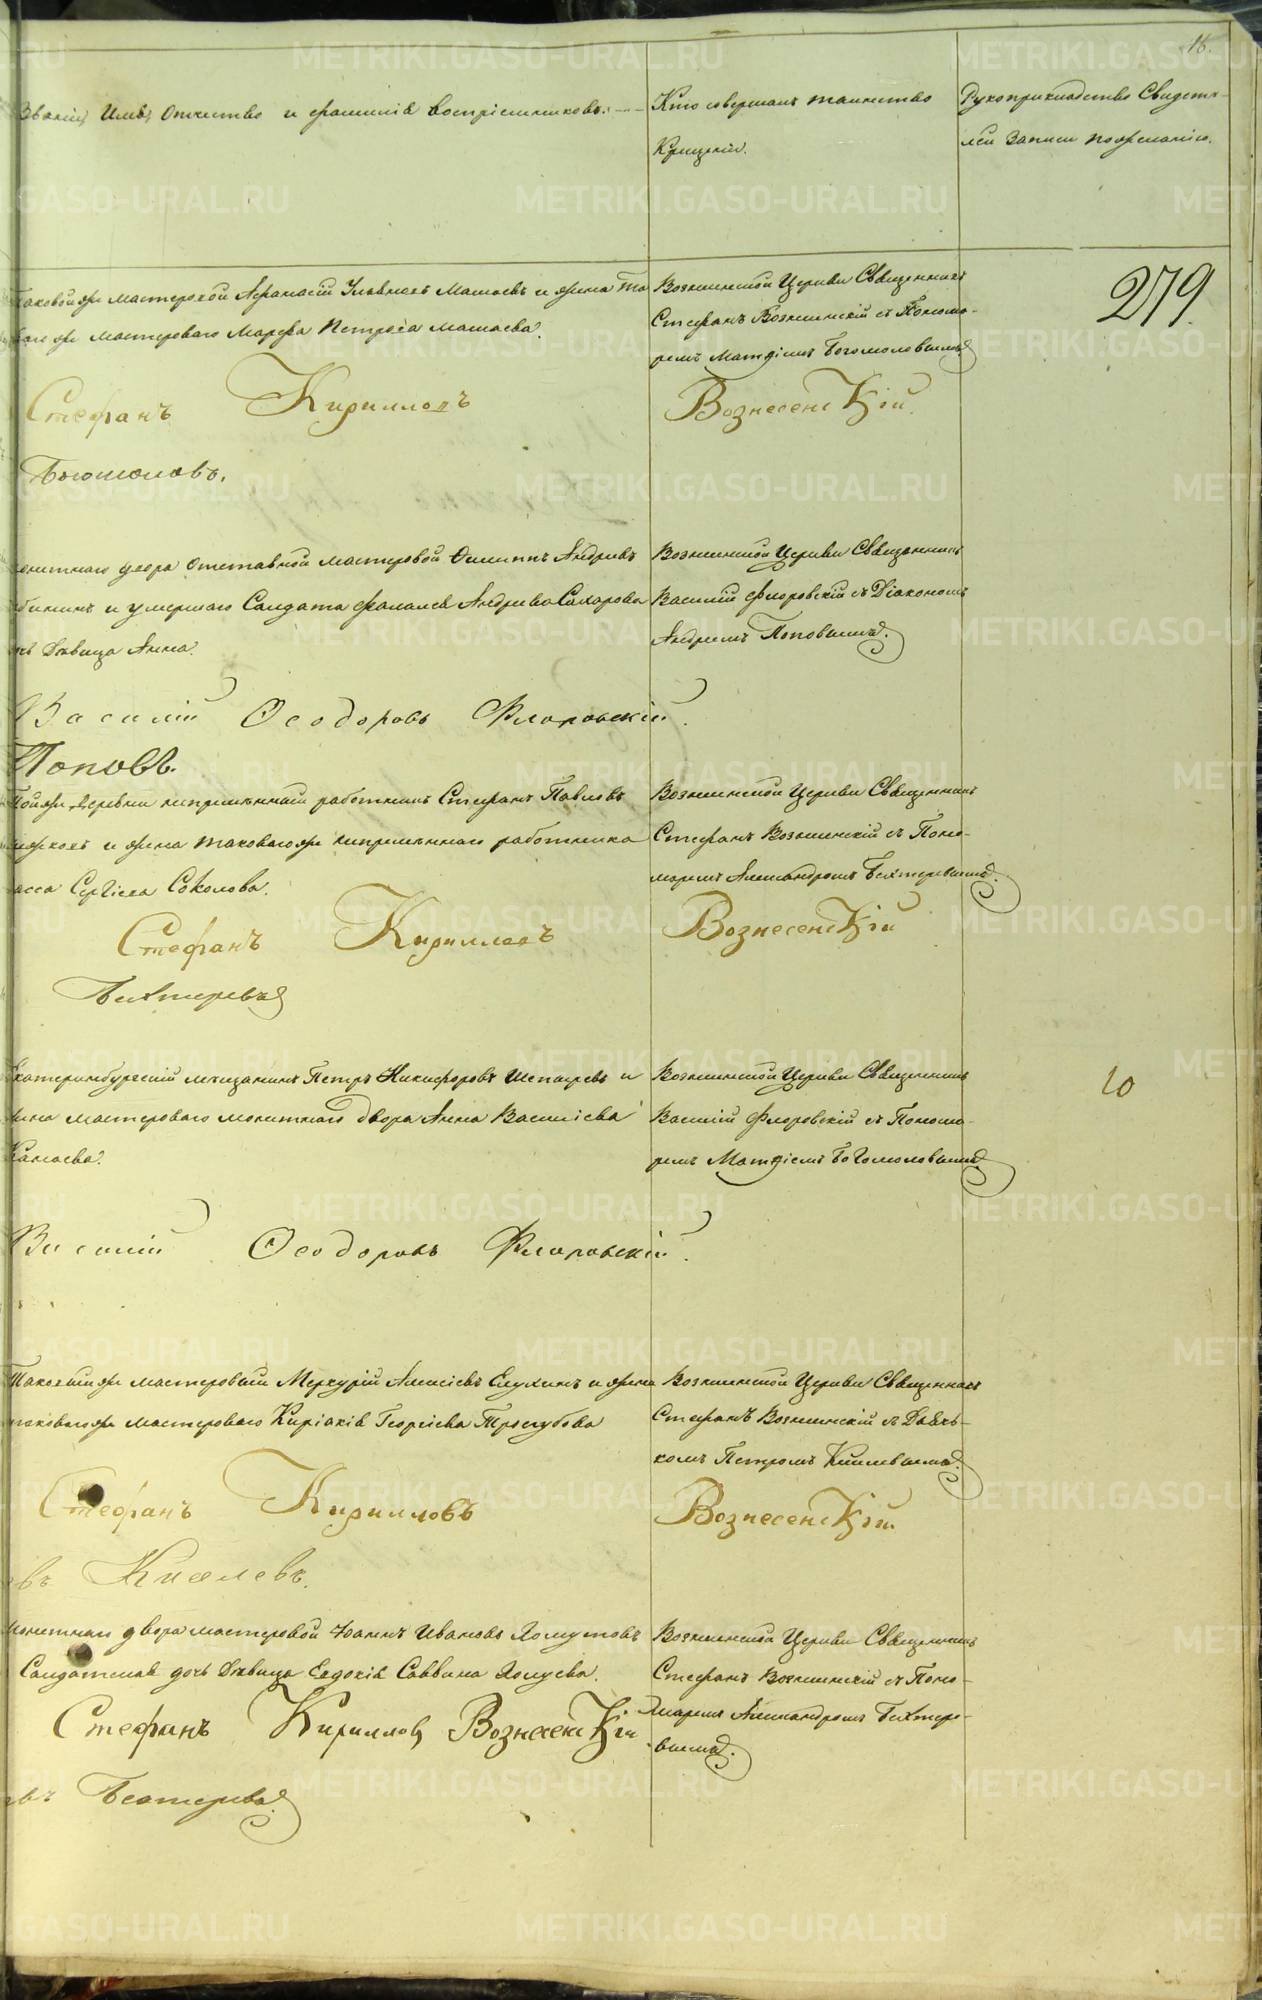 16.
Званіе, Имя, Отчество и фамилія воспріемниковъ.
Кто совершалъ таинство
Крещенія.
Рукоприкладство Свидѣте-
лей записи по желанію.
279.
Таковой же мастеровой Афанасій Ильинъ Мамаевъ и жена та
кого же мастероваго Марфа Петрова Мамаева.
Вознесенской Церкви Священникъ
Стефанъ Вознесенскій съ Понома-
ремъ Матѳіемъ Богомоловымъ
Стефанъ Кирилловъ Вознесенскій.
Богомоловъ.
монетнаго двора отставной мастеровой Филиппъ Андреевъ
и умершаго Солдата Андреева Сахарова
дѣвица Анна.
Вознесенской Церкви Священникъ
Василій Флоровскій съ Діакономъ
Андреемъ Поповымъ.
Василій Ѳеодоровъ Флоровскій.
Поповъ.
Той же деревни непремѣнный работникъ Стефанъ Павловъ
и жена таковаго же непремѣннаго работника
Сергіева Соколова.
Вознесенской Церкви Священникъ
Стефанъ Вознесенскій съ Поно-
маремъ Александромъ Бехтеревымъ.
Стефанъ Кирилловъ Вознесенскій
Бехтеревъ
Екатеринбургскій мѣщанинъ Петръ Никифоровъ и
жена мастероваго монетнаго двора Анна Васильева
Вознесенской Церкви Священникъ
Василій Флоровскій съ Понома-
ремъ Матѳіемъ Богомоловымъ
10
Василій Ѳеодоровъ Флоровскій.
Таковый же мастеровый Меркурій Алексіевъ Елухинъ и жена
таковаго же мастероваго Киріакія Георгіева Трегубова
Вознесенской Церкви Священникъ
Стефанъ Вознесенскій съ Дьяч-
комъ Петромъ Киселевымъ.
Стефанъ Кирилловъ Вознесенскій
Киселевъ.
Монетнаго двора мастеровой Іоаннъ Ивановъ Хомутовъ
Солдатская дочь дѣвица Евдокія Саввина
Вознесенской Церкви Священникъ
Стефанъ Вознесенскій съ Поно-
маремъ Александромъ Бехтере-
вымъ.
Стефанъ Кирилловъ Вознесенскій
Бехтеревъ
METRIKI.GASO-URAL.RU